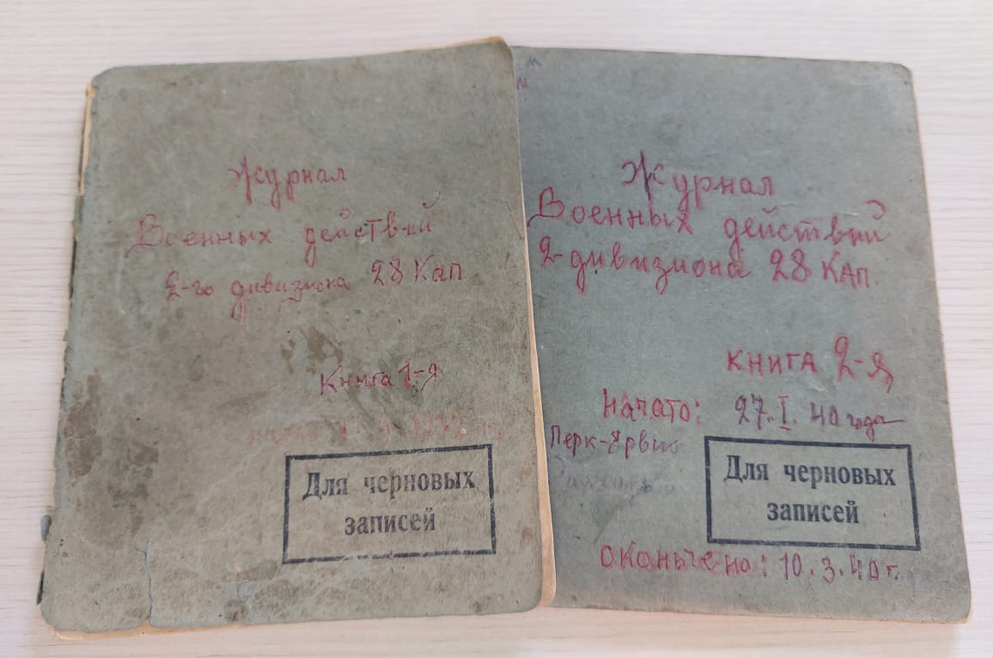 Журнал
Военных действий
2-го дивизиона 28 Кап
Книга 1-я
Для черновых
записей
Журнал
Военных действий
2-дивизиона 28 КАП.
КНИГА 2-я
Начато: 27.I.40 года
Перк-Ярви
Для черновых
записей
Оканьчено: 10.3.40 г.